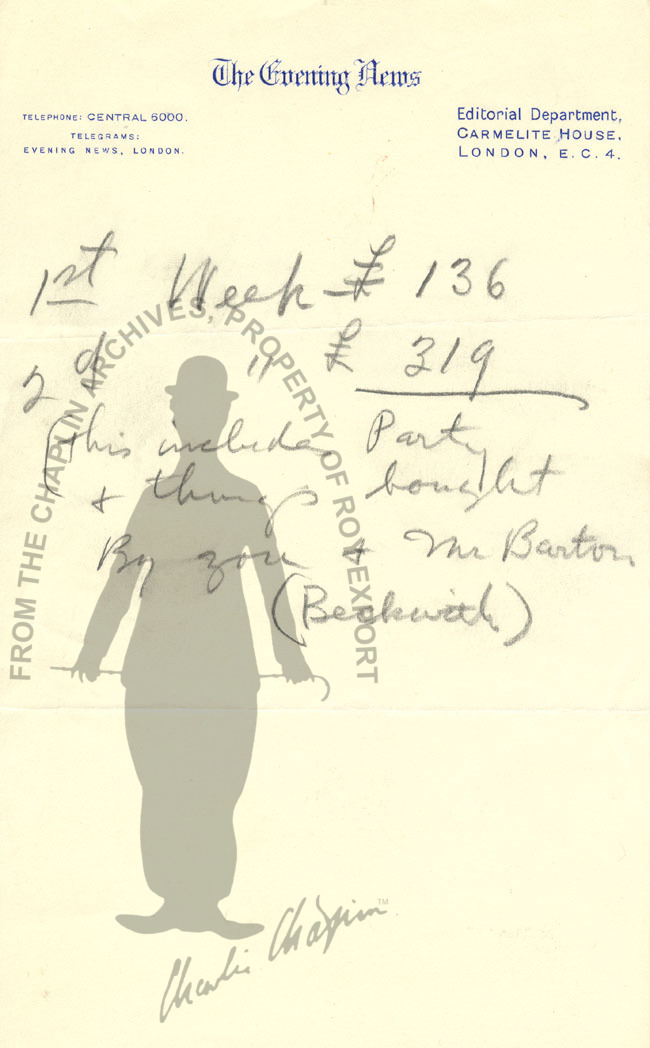 The Evening News
TELEPHONE: CENTRAL 6000.
TELEGRAMS:
EVENING NEWS, LONDON.
Editorial Department,
CARMELITE HOUSE,
LONDON, E.C.4.
1st Week - £ 136
2d " £ 319
(This includes Party
+ things bought
By you + Mr Barton
(Beckwith)
FROM THE CHAPLIN ARCHIVES, PROPERTY OF ROY EXPORT
Charlie Chaplin™